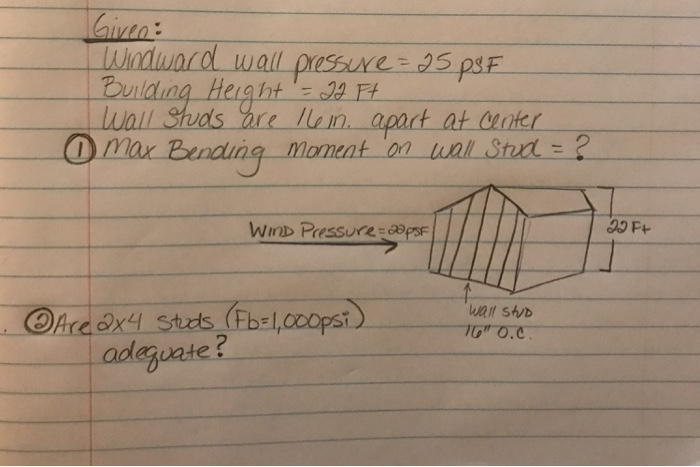 Given:
Windward wall pressure = 25 psf
Building Height = 22 Ft
Wall Studs are 16 in. apart at center
① Max Bending moment on wall Stud = ?
Wind Pressure = 22 psf
22 Ft
wall stud
16" O.C.
② Are 2x4 studs (Fb=1,000psi)
adequate?